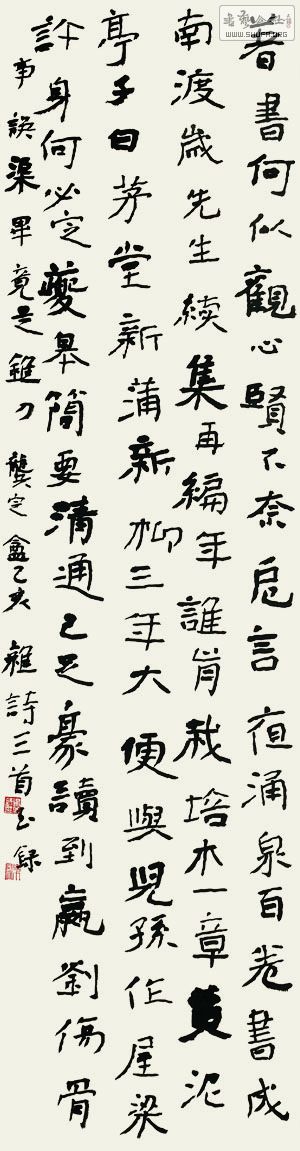 著書何似觀心賢不奈卮言夜涌泉百卷書成
南渡歲先生續集再編年誰肯栽培木一章黃泥
亭子白茅堂新蒲新柳三年大便與兒孫作屋梁
許身何必定夔皋簡要清通已足豪讀到嬴劉傷骨
事誤渠畢竟是錐刀 龔定盦己亥雜詩三首 錄